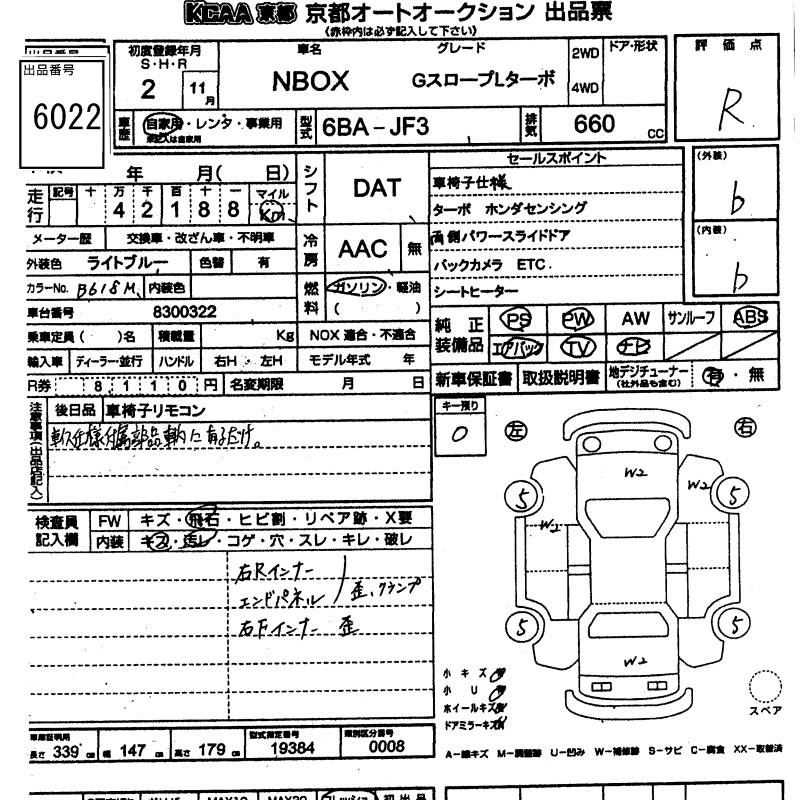 KCAA 京都 京都オートオークション 出品票
(赤枠内は必ず記入して下さい)
出品番号
6022
初度登録年月
S・H・R
2 11月
車名
NBOX
グレード
GスロープLターボ
2WD
4WD
ドア・形状
評価点
R
車歴 自家用・レンタ・事業用
未記入は自家用
型式 6BA-JF3
排気 660 cc
年 月( 日)
シフト DAT
セールスポイント
車椅子仕様
ターボ ホンダセンシング
両側パワースライドドア
バックカメラ ETC.
シートヒーター
(外装)
b
(内装)
b
走行 記号 十 万 千 百 十 一 マイル
4 2 1 8 8 Km
メーター歴 交換車・改ざん車・不明車
冷房 AAC 無
外装色 ライトブルー 色替 有
カラーNo. B618M 内装色
燃料 ガソリン・軽油
( )
車台番号 8300322
乗車定員( )名 積載量 Kg NOX 適合・不適合
輸入車 ディーラー・並行 ハンドル 右H・左H モデル年式 年
R券 8110円 名変期限 月 日
純正装備品 PS PW AW サンルーフ ABS
エアバッグ TV ナビ
新車保証書 取扱説明書 地デジチューナー(社外品も含む) 有・無
注意事項(出品店記入)
後日品 車椅子リモコン
車イス仕様付属部品車内に有るだけ。
キー預り
0
左 右
検査員記入欄 FW キズ・飛石・ヒビ割・リペア跡・X要
内装 キズ・汚レ・コゲ・穴・スレ・キレ・破レ
右Rインナー
エンドパネル 歪、クランプ
右Fインナー 歪
W2
W2
W2
W2
5 5
5 5
小キズ
小U
ホイールキズ
ドアミラーキズ
スペア
車庫証明用
長さ 339cm 幅 147cm 高さ 179cm
型式指定番号
19384
類別区分番号
0008
A-線キズ M-調整跡 U-凹み W-補修跡 S-サビ C-腐食 XX-取替済